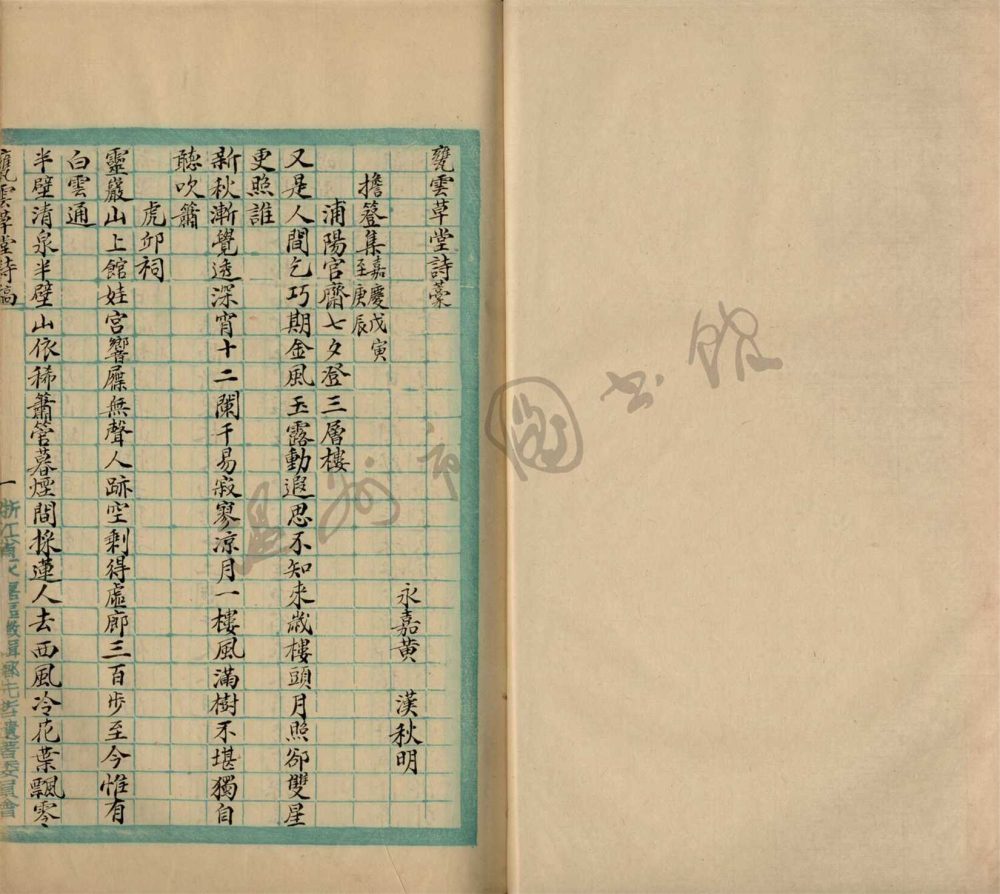 甕雲草堂詩藁
永嘉黃　漢秋明
擔簦集嘉慶戊寅至庚辰
浦陽官齋七夕登三層樓
又是人間乞巧期金風玉露動遐思不知来歲樓頭月照卻雙星
更照誰
新秋漸覺透深宵十二闌干易寂寥凉月一樓風滿樹不堪獨自
聽吹簫
虎邱祠
靈巖山上館娃宮響屧無聲人跡空剩得虛廊三百步至今惟有
白雲通
半壁清泉半壁山依稀簫管暮煙間採蓮人去西風冷花葉飄零
甕雲草堂詩稿
一
温州市圖书館